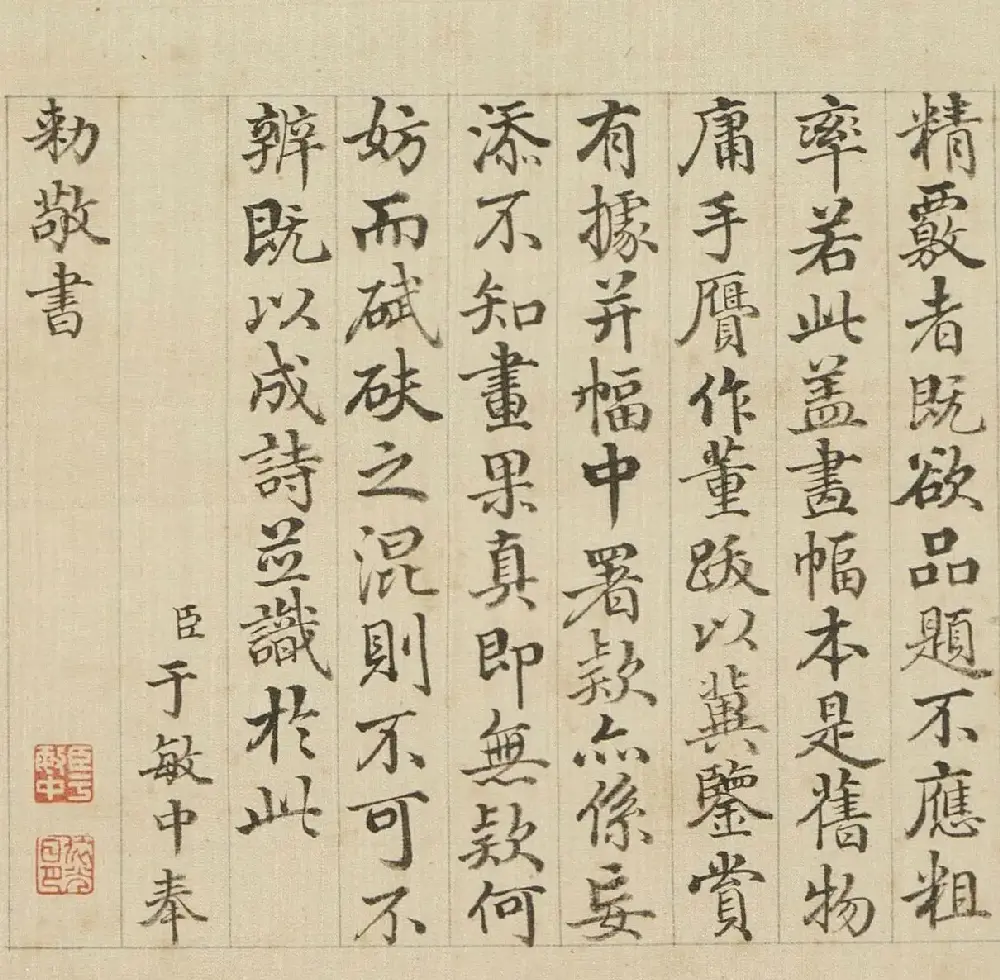 精覈者既欲品題不應粗
率若此盖畫幅本是舊物
庸手贗作董跋以冀鑒賞
有據并幅中署款亦係妄
添不知畫果真即無款何
妨而碔砆之混則不可不
辨既以成詩並識於此
臣于敏中奉
勅敬書
臣于敏中